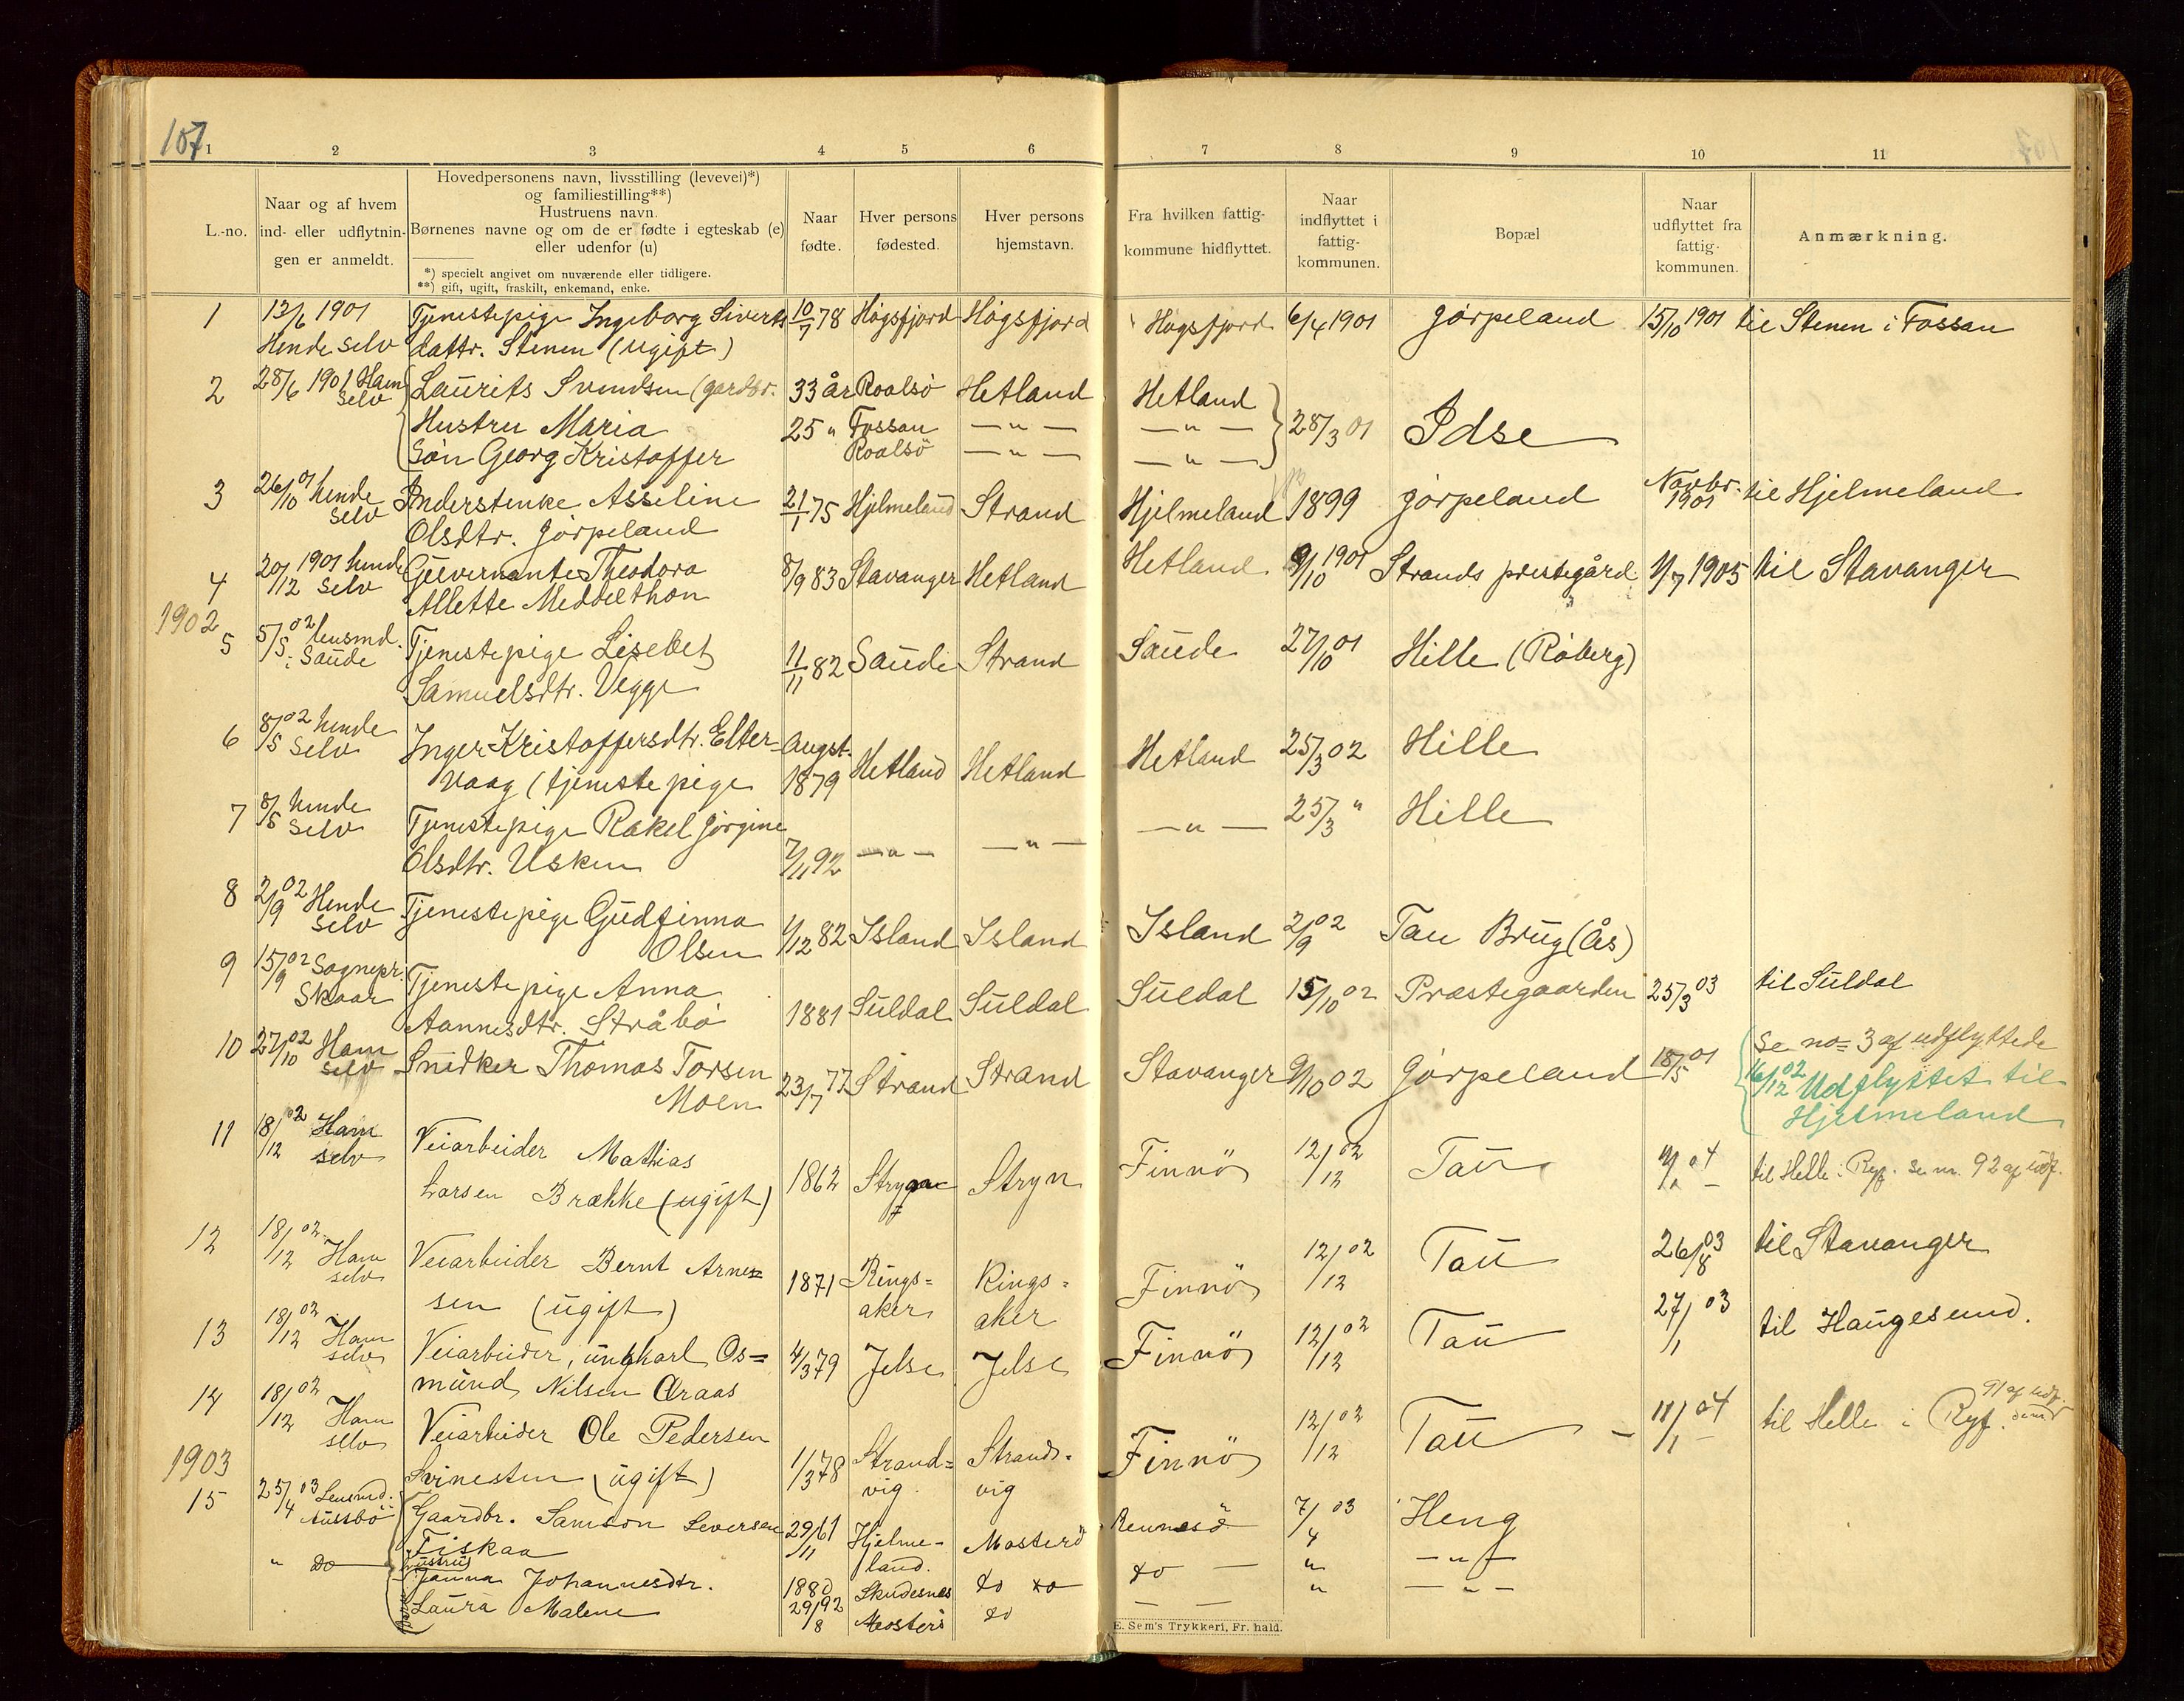 107
1 2 3 4 5 6 7 8 9 10 11
L.-no.
Naar og af hvem
ind- eller udflytnin-
gen er anmeldt.
Hovedpersonens navn, livsstilling (levevei)*)
og familiestilling**)
Hustruens navn.
Børnenes navne og om de er fødte i egteskab (e)
eller udenfor (u)
*) specielt angivet om nuværende eller tidligere.
**) gift, ugift, fraskilt, enkemand, enke.
Naar
fødte.
Hver persons
fødested.
Hver persons
hjemstavn.
Fra hvilken fattig-
kommune hidflyttet.
Naar
indflyttet i
fattig-
kommunen.
Bopæl
Naar
udflyttet fra
fattig-
kommunen.
Anmærkning.
1 12/6 1901 Tjenestepige Ingeborg Siverts 10/7 78 Høgsfjord Høgsfjord Høgsfjord 6/4 1901 Jørpeland 15/10 1901 til Stenen i Fossan
Hende selv dattr. Stenen (ugift)
2 28/6 1901 Ham Laurits Svendsen (gardbr. 33 år Roalsö Hetland Hetland 28/3 01 Idse
selv
Hustru Maria 25 " Fossan — " — — " —
Søn Georg Kristoffer Roalsö — " — — " —
3 26/10 01 hende Inderstenke Asseline 21/1 75 Hjelmeland Strand Hjelmeland 1899 Jørpeland Novbr. 1901 til Hjelmeland
selv Olsdtr. Jørpeland
4 20/12 1901 hende Guvernante Theodora 8/9 83 Stavanger Hetland Hetland 9/10 1901 Strands prestegård 1/7 1905 til Stavanger
selv Allette Meddelthon
1902
5 5/5 02 lensmd. Tjenestepige Lisebet 11/11 82 Saude Strand Saude 27/10 01 Hille (Røberg)
i Saude Samuelsdtr. Vegge
6 8/5 02 hende Inger Kristoffersdtr. Elter- Augst. Hetland Hetland Hetland 25/3 02 Hille
selv vaag (tjenestepige 1879
7 8/5 hende Tjenestepige Rakel Jørgine — " — — " — — " — 25/3 " Hille
selv Olsdtr. Usken 7/11 92
8 2/9 02 Hende Tjenestepige Gudfinna 1/12 82 Island Island Island 2/9 02 Tau Brug (Ås)
selv Olsen
9 15/9 02 Sognepr. Tjenestepige Anna 1881 Suldal Suldal Suldal 15/10 02 Præstegaarden 25/3 03 til Suldal
Skaar Aannesdtr. Stråbø
10 27/10 02 Ham Snedker Thomas Torsen 23/7 77 Strand Strand Stavanger 9/10 02 Jørpeland 18/5 01 Se no= 3 af udflyttede
selv Moen 16/12 02 Udflyttet til
Hjelmeland
11 18/12 02 Ham Veiarbeider Mathias 1862 Stryn Finnö 12/12 02 Tau 04 til Helle i Ryf. Se nr. 92 af udf.
selv Larsen Brække (ugift)
12 18/12 02 Ham Veiarbeider Bernt Arne= 1871 Rings= Rings= Finnö 12/12 02 Tau 26/8 03 til Stavanger
selv sen (ugift) aker aker
13 18/12 02 Ham Veiarbeider, ungkarl Os= 4/3 79 Jelse Jelse Finnö 12/12 02 Tau 27/1 03 til Haugesund.
selv mund Nilsen Øraas
14 18/12 02 Ham Veiarbeider Ole Pedersen 1/3 78 Strand= Strand= Finnö 12/12 02 Tau 11/1 04 til Helle i Ryf. 91 af udf.
selv Svinesten (ugift) vig vig
1903
15 25/4 03 Lensmd. Gaardbr. Samson Seversen 29/11 61 Hjelme- Mosterö Rennesö 7/4 03 Heng
Aussbö Fiskaa land.
" do Hustru Janna Johannesdtr. 1880 Skudesnes do do do — " — " —
Laura Malene 29/8 92 Mosterö do — — " — " —
E. Sem's Trykkeri, Fr. hald.